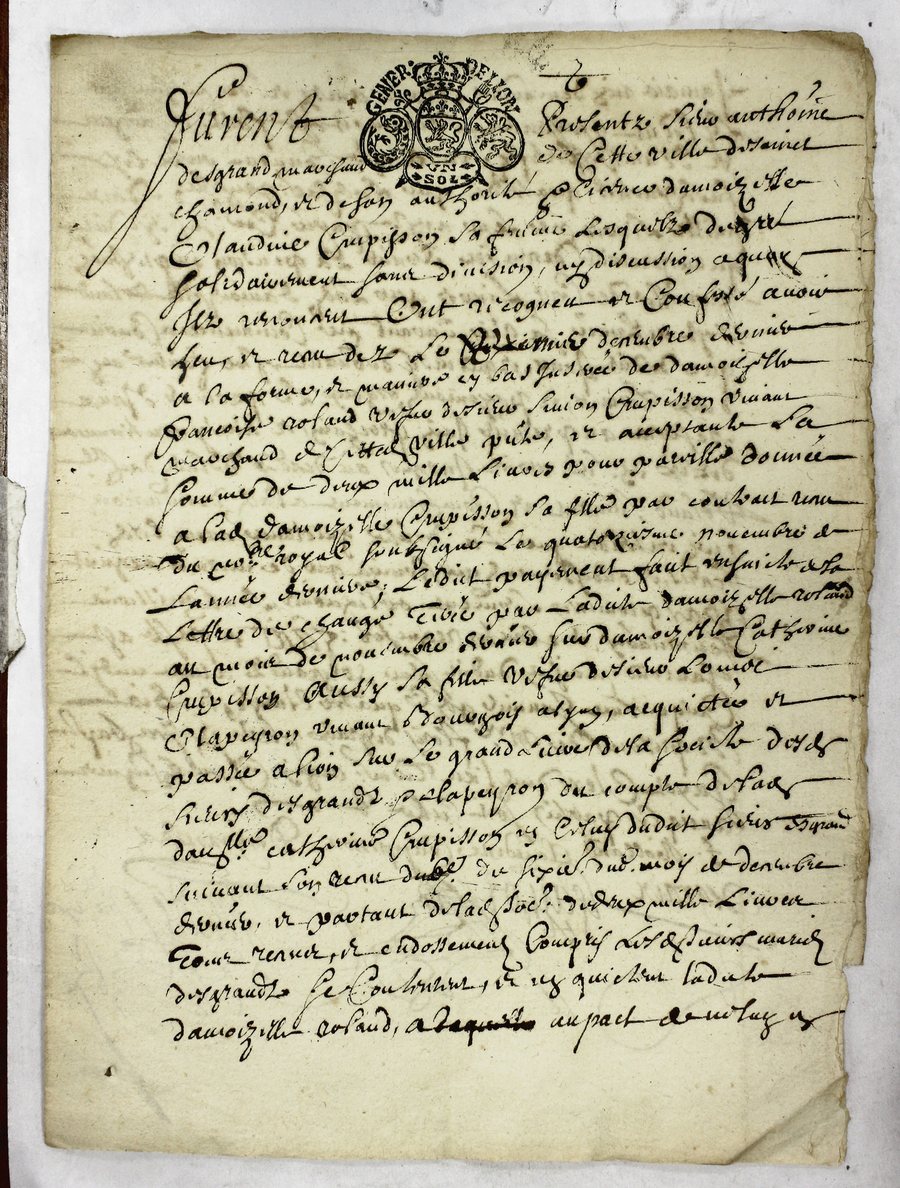 GENER DE LION
UN
SOL
Furent Presentz sieur anthoine
desgrand marchand de Cette ville de sainct
chamond, et de son authorité licence damoizelle
Claudine Crupisson sa femme lesquelz de gré
solidairement sans division, ny discussion a quoy
Ilz renoncent Ont recogneu et Confessé avoir
heu, et receu dez Le decembre dernier
a la forme, et maniere cy bas Inserée de damoizelle
francoise roland vefve de sieur simon Crupisson vivant
marchand de cette ville pnte, et acceptante La
somme de deux mille Livres pour pareille donnée
a lad damoizelle Crupisson sa fille par contrait receu
du nore royal soubsigné Le quatorziesme novembre de
Lannée derniere, Ledict payement faict ensuicte de la
Lettre de change Tirée par Ladicte damoizelle roland
au mois de novembre dernier sur damoizelle Catherine
Crupisson Aussy sa fille vefve de sieur
Clapeyron vivant Bourgois a lyon, acquictée et
passée a lion sur Le grand Livre de la societe desd
sieurs desgrand Clapeyron du compte de lad
damlle catherine Crupisson en Celuy dudit sieur desgrand
suivant son receu du six mois de decembre
dernier, et partant de lad de deux mille Livres
receu, et endossement Compris Lesd mariez
desgrand se Contentent, et en quictent ladicte
damoizelle roland, au pact de